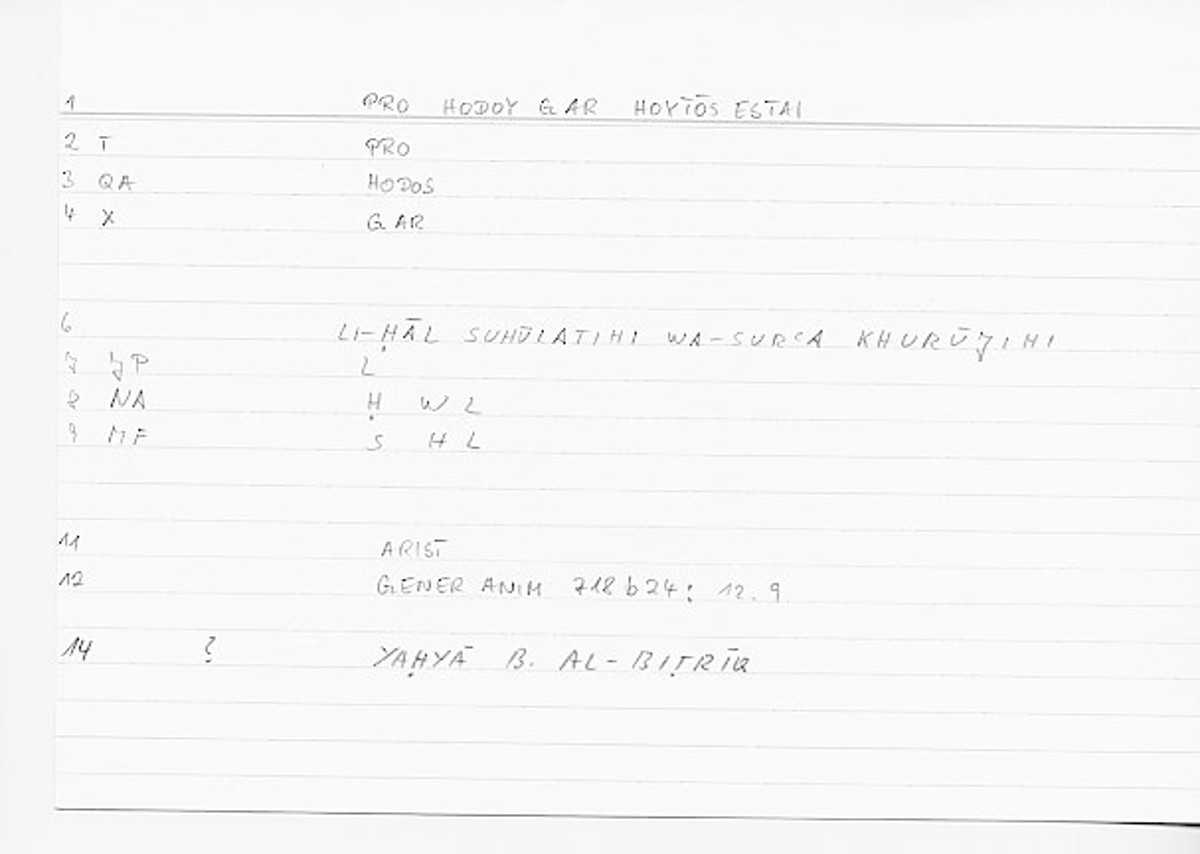 1 PRO HODOY GAR HOYTŌS ESTAI
2 T PRO
3 QA HODOS
4 X GAR
6 LI-ḤĀL SUHŪLATIHI WA-SURʿA KHURŪJIHI
7 JP L
8 NA Ḥ W L
9 MF S H L
11 ARIST
12 GENER ANIM 718 b 24 : 12.9
14 ? YAḤYĀ B. AL-BIṬRĪQ